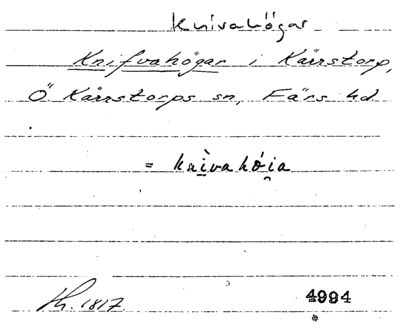 Knivahögar
Knifvahögar i Kärrstorp,
Ö Kärrstorps sn, Färs hd
= kaìvahóia
Th. 1817 4994